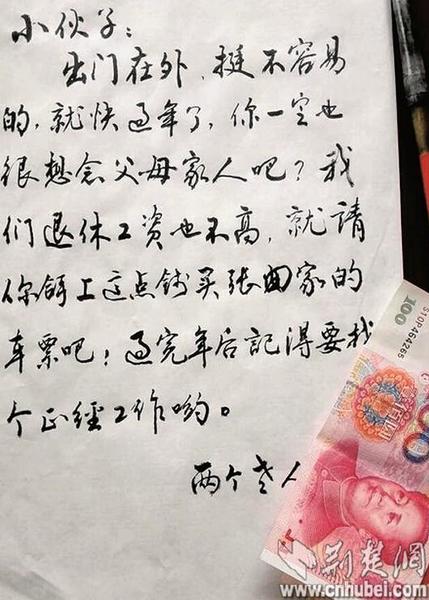 小伙子：
出门在外，挺不容易
的，就快过年了，你一定也
很想念父母家人吧？我
们退休工资也不高，就請
你拿上这点钱买张回家的
车票吧！过完年后記得要找
个正經工作哟。
两个老人
100
S10P464265
荆楚網
www.cnhubei.com